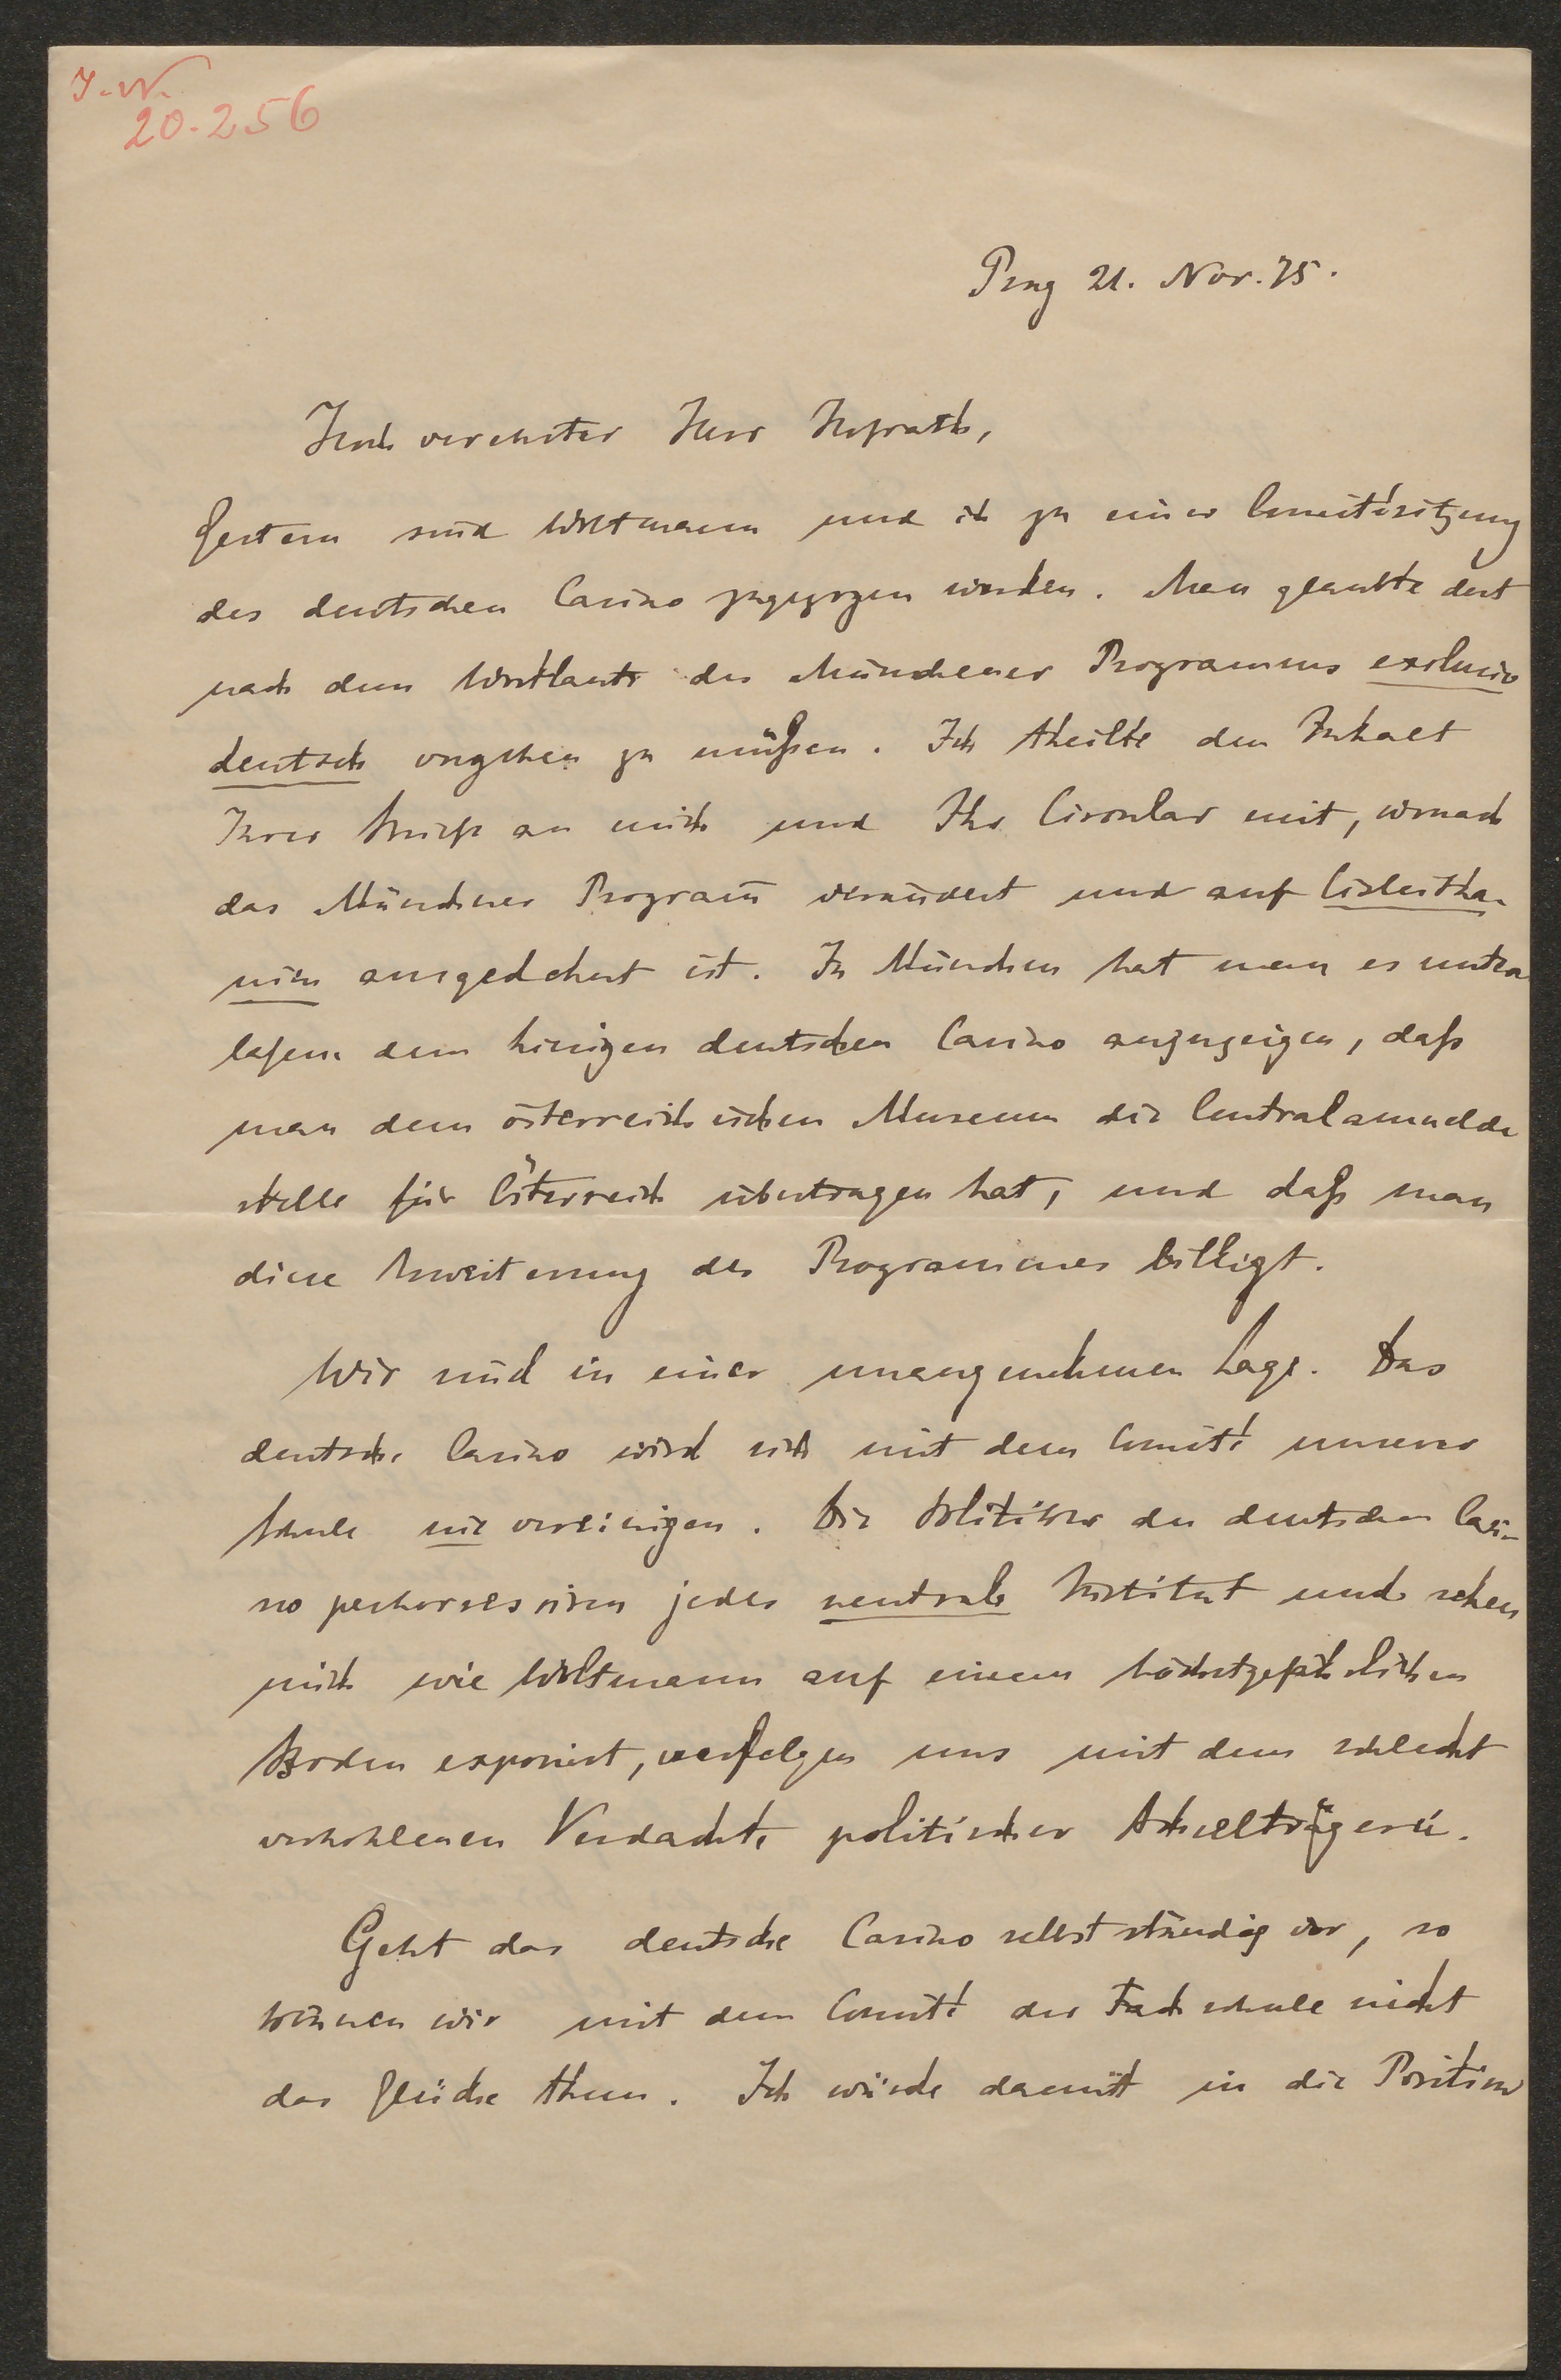 I.N.
20.256
Prag 21. Nov. 75.
Hochverehrter Herr Hofrath,
Gestern sind Woltmann und ich zu einer Comitésitzung
des deutschen Casino zugezogen worden. Man glaubte dort
nach dem Wortlaute des Münchener Programms exclusiv
deutsch vorgehen zu müßen. Ich theilte den Inhalt
Ihres Briefs an mich und Ihr Circular mit, wonach
das Münchner Program̄ verändert und auf Cisleitha-
nien ausgedehnt ist. In München hat man es unter-
laßen dem hiesigen deutschen Casino anzuzeigen, daß
man dem österreichischen Museum die Centralanmelde
stelle für Österreich übertragen hat, und daß man
diese Erweiterung des Programmes billigt.
Wir sind in einer unangenehmen Lage. Das
deutsche Casino wird sich mit dem Comité unserer
Schule nie vereinigen. Die Politiker des deutschen Casi-
no perhorresciren jedes neutrale Institut und sehen
mich wie Woltmann auf einem höchstgefährlichen
Boden exponirt, verfolgen uns mit dem schlecht
verhohlenen Verdachte politischer Achselträgerei.
Geht das deutsche Casino selbstständig vor, so
können wir mit dem Comité der Fachschule nicht
das Gleiche thun. Ich würde damit in die Position